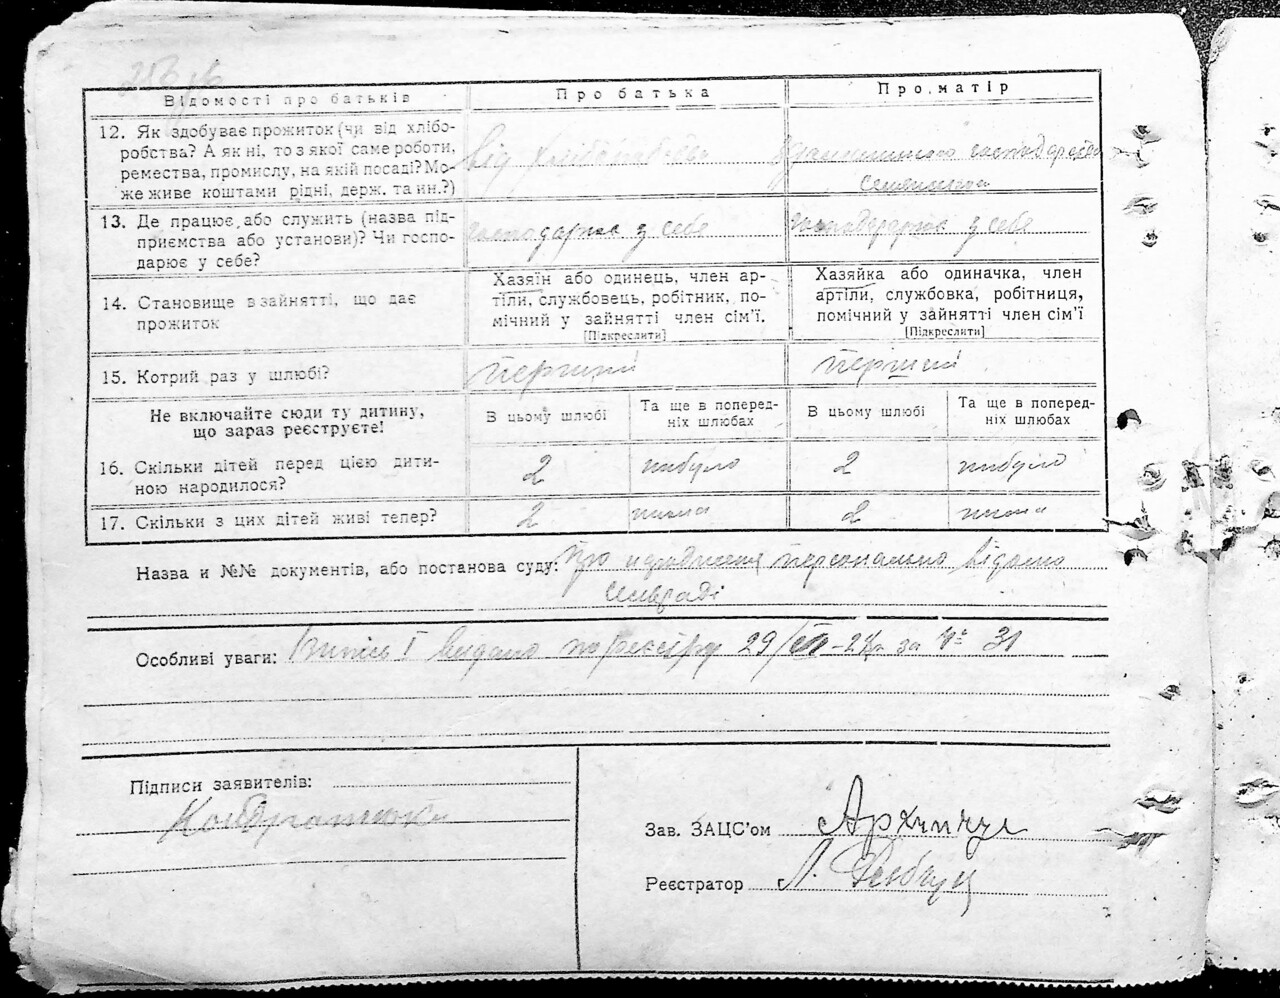 Відомості про батьків
Про батька
Про матір
12. Як здобуває прожиток (чи від хлібо-
робства? А як ні, то з якої саме роботи,
ремества, промислу, на якій посаді? Мо-
же живе коштами рідні, держ. та ин.?)
від хліборобства
господарства
13. Де працює, або служить (назва під-
приємства або установи)? Чи госпо-
дарює у себе?
господарює у себе
господарює у себе
14. Становище в зайнятті, що дає
прожиток
Хазяїн або одинець, член ар-
тіли, службовець, робітник, по-
мічний у зайнятті член сім'ї.
[Підкреслити]
Хазяйка або одиначка, член
артіли, службовка, робітниця,
помічний у зайнятті член сім'ї
[Підкреслити]
15. Котрий раз у шлюбі?
перший
перший
Не включайте сюди ту дитину,
що зараз реєструєте!
В цьому шлюбі
Та ще в поперед-
ніх шлюбах
В цьому шлюбі
Та ще в поперед-
ніх шлюбах
16. Скільки дітей перед цією дити-
ною народилося?
2
небуло
2
небуло
17. Скільки з цих дітей живі тепер?
2
нема
2
нема
Назва и №№ документів, або постанова суду: Про народження персонально відомо
сільраді
Особливі уваги: видано по реєстру 29/ за № 31
Підписи заявителів:
Кондратюк
Зав. ЗАЦС'ом
Реєстратор Л.